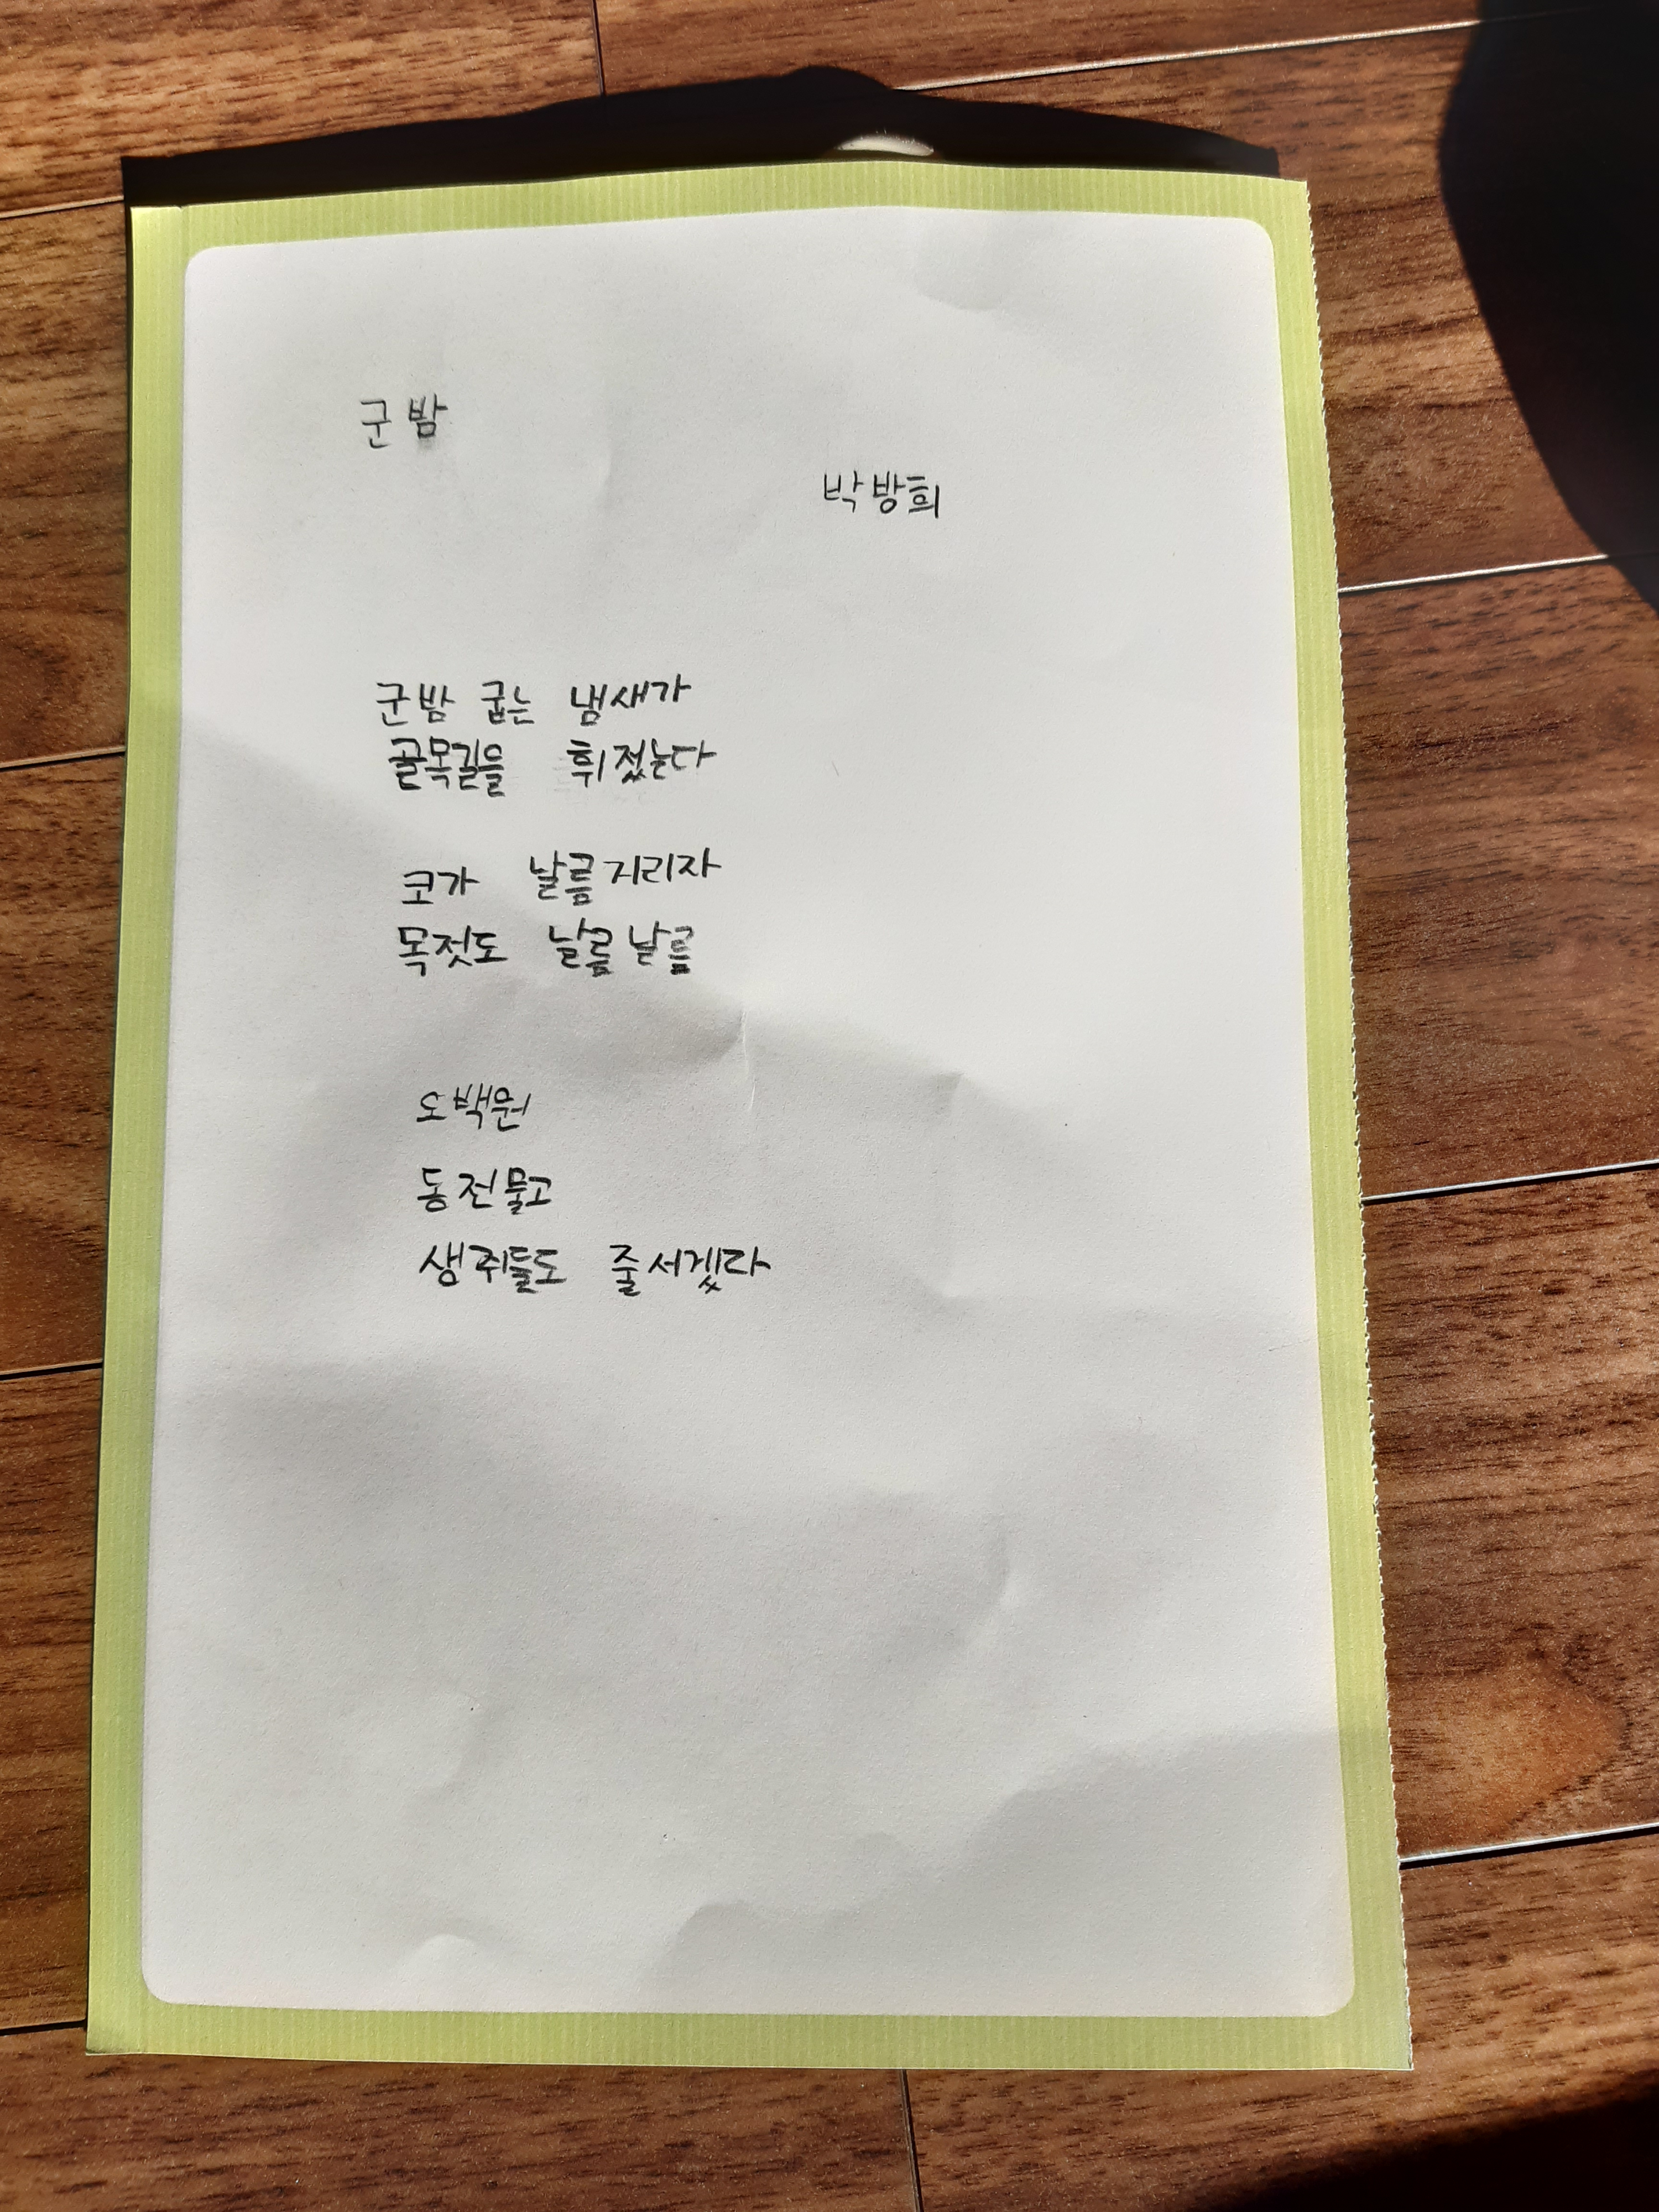 군밤
박방희
군밤 굽는 냄새가
골목길을 휘젓는다
코가 날름거리자
목젖도 날름날름
오백원
동전물고
생쥐들도 줄서겠다